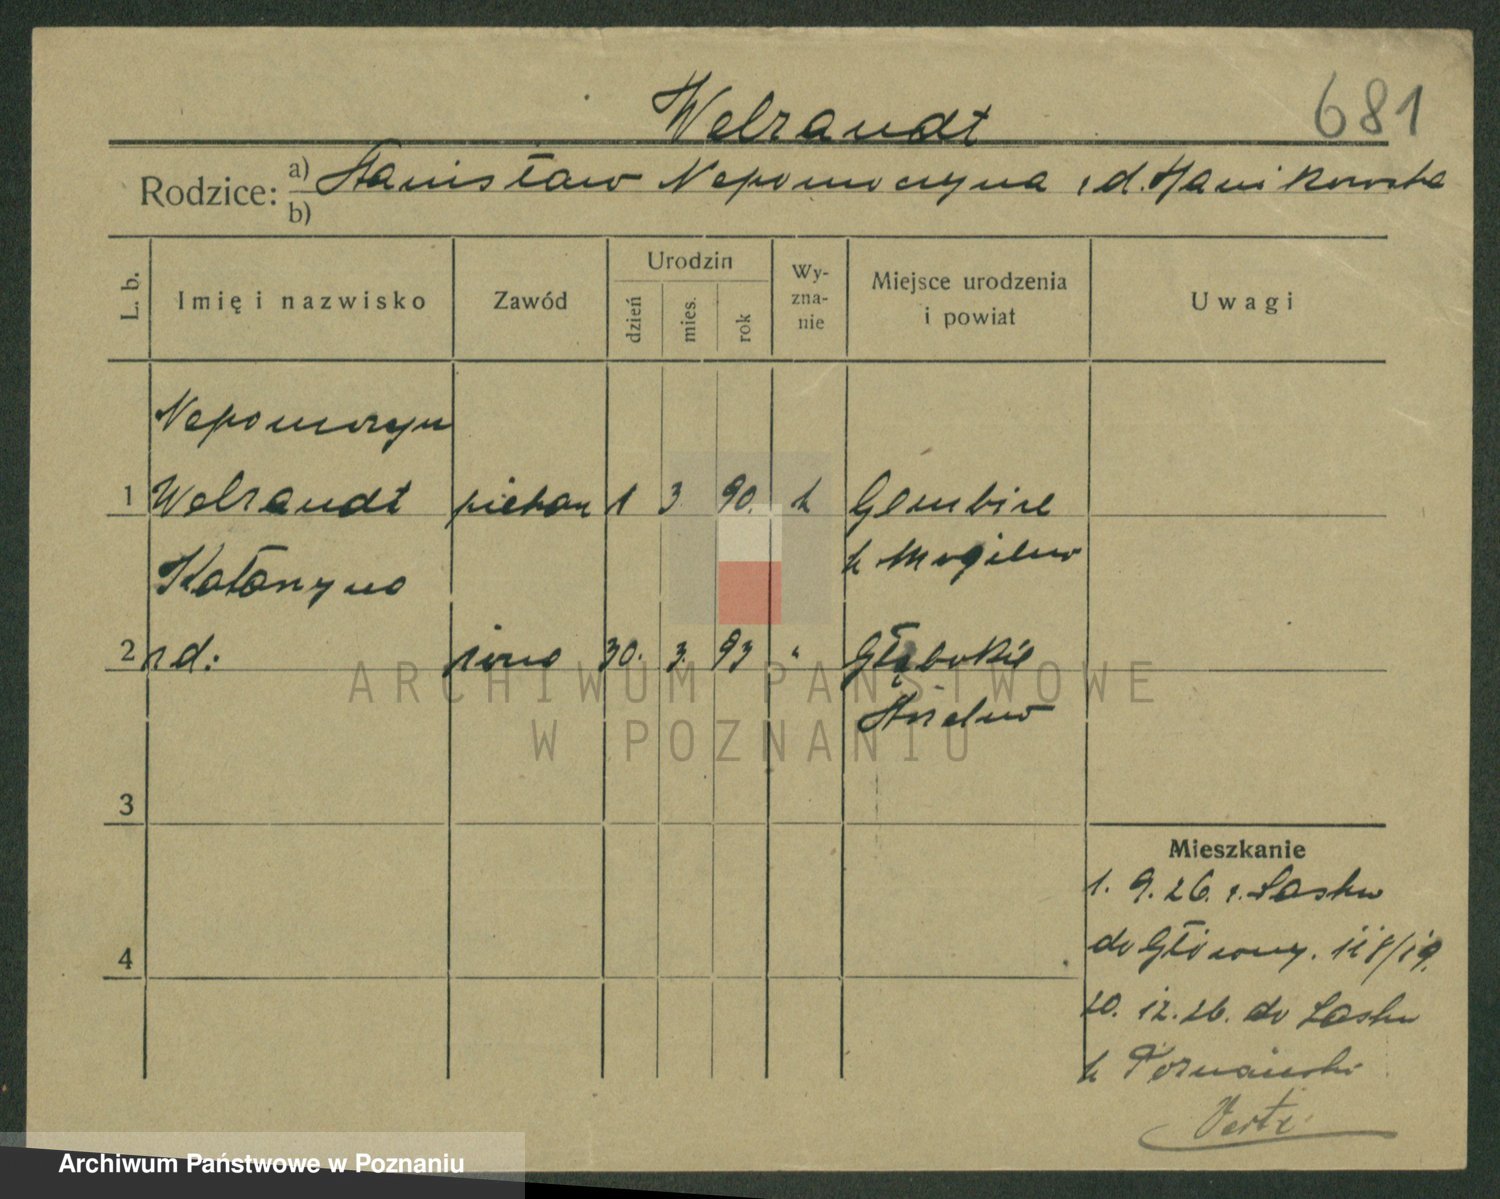 681
Welzandt
Rodzice: a) Stanisław Nepomocyna z d. Hanikowska
b)
L. b.
Imię i nazwisko
Zawód
Urodzin
dzień
mies.
rok
Wy-
zna-
nie
Miejsce urodzenia
i powiat
Uwagi
Nepomuczyn
1 Welzandt piekarz 1 3 90. k Gembice
p. Mogilno
Katarzyna
2 z d: żona 30. 3. 93 " Głębokie
Strzelno
3
Mieszkanie
1. 9. 26. z. Lasku
do Głowny. 118/19.
4
20. 12. 26. do Lasku
p. Poznański
Verte
ARCHIWUM PAŃSTWOWE
W POZNANIU
Archiwum Państwowe w Poznaniu